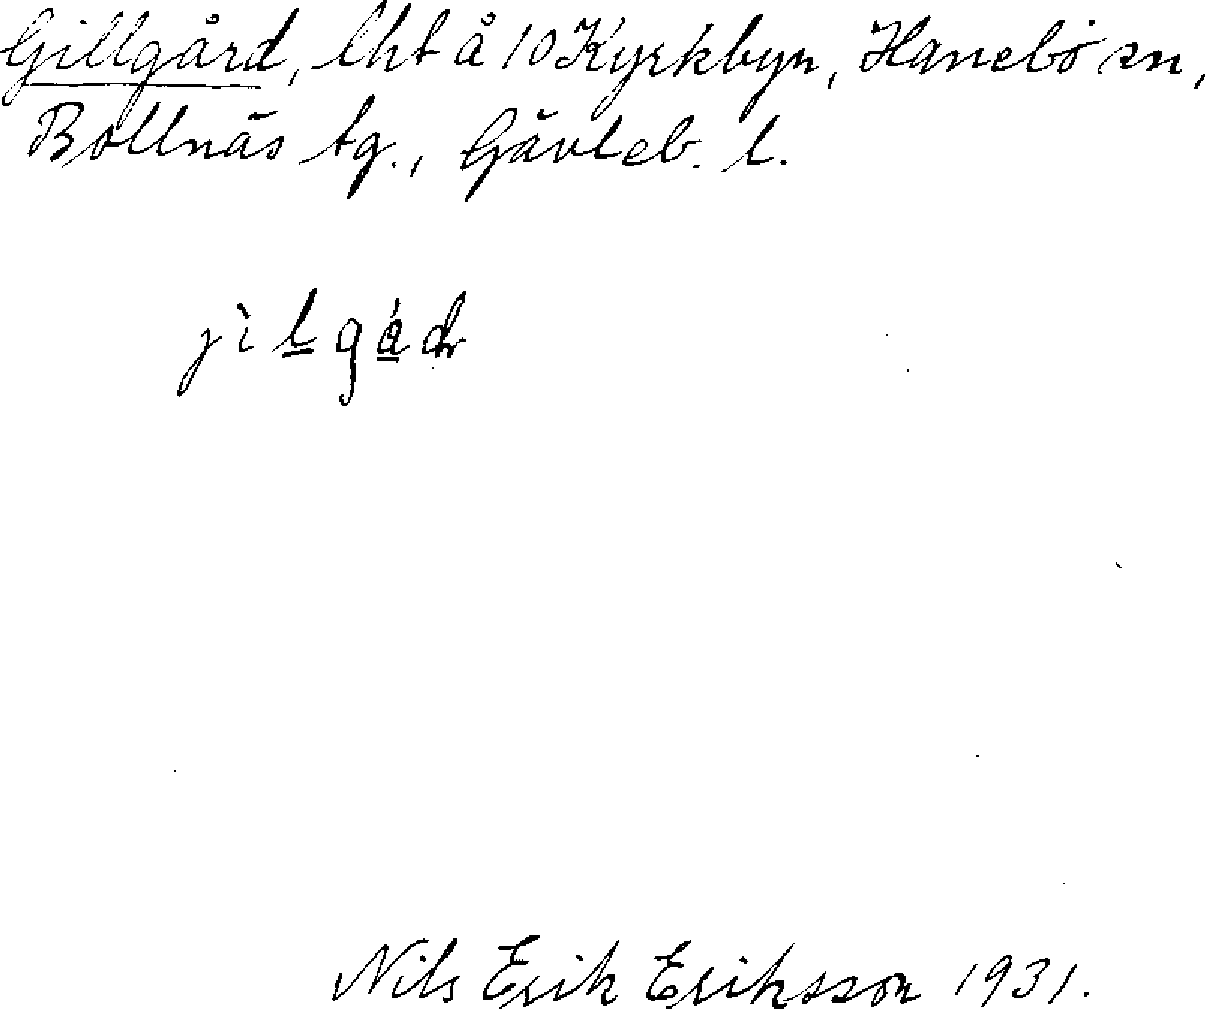 Gillgård, lht å 10 Kyrkbyn, Hanebo sn,
Bollnäs tg., Gävleb. l.
jìlgád
Nils Erik Eriksson 1931.